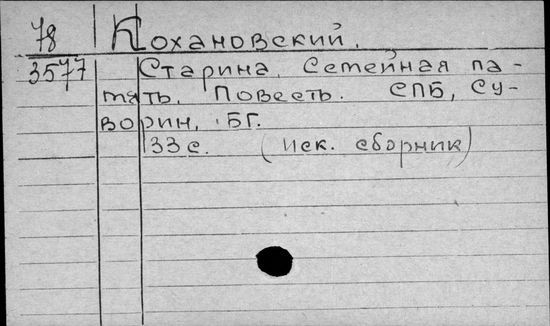 78 Кохановский.
3577 Старина. Семейная па-
мять. Повесть. СПБ, Су-
ворин, БГ.
33 с. (иск. сборник)